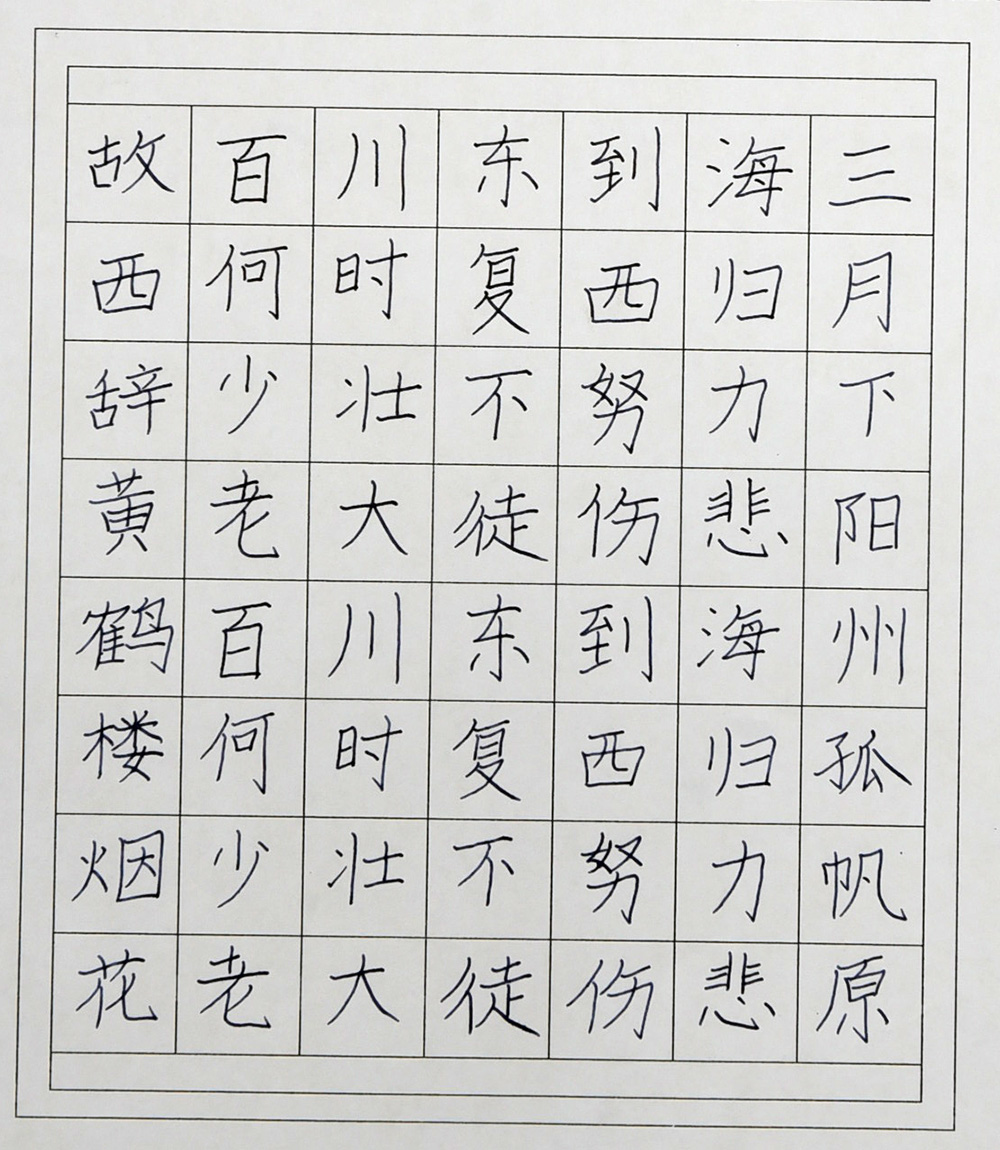 故百川东到海三
西何时复西归月
辞少壮不努力下
黄老大徒伤悲阳
鹤百川东到海州
楼何时复西归孤
烟少壮不努力帆
花老大徒伤悲原